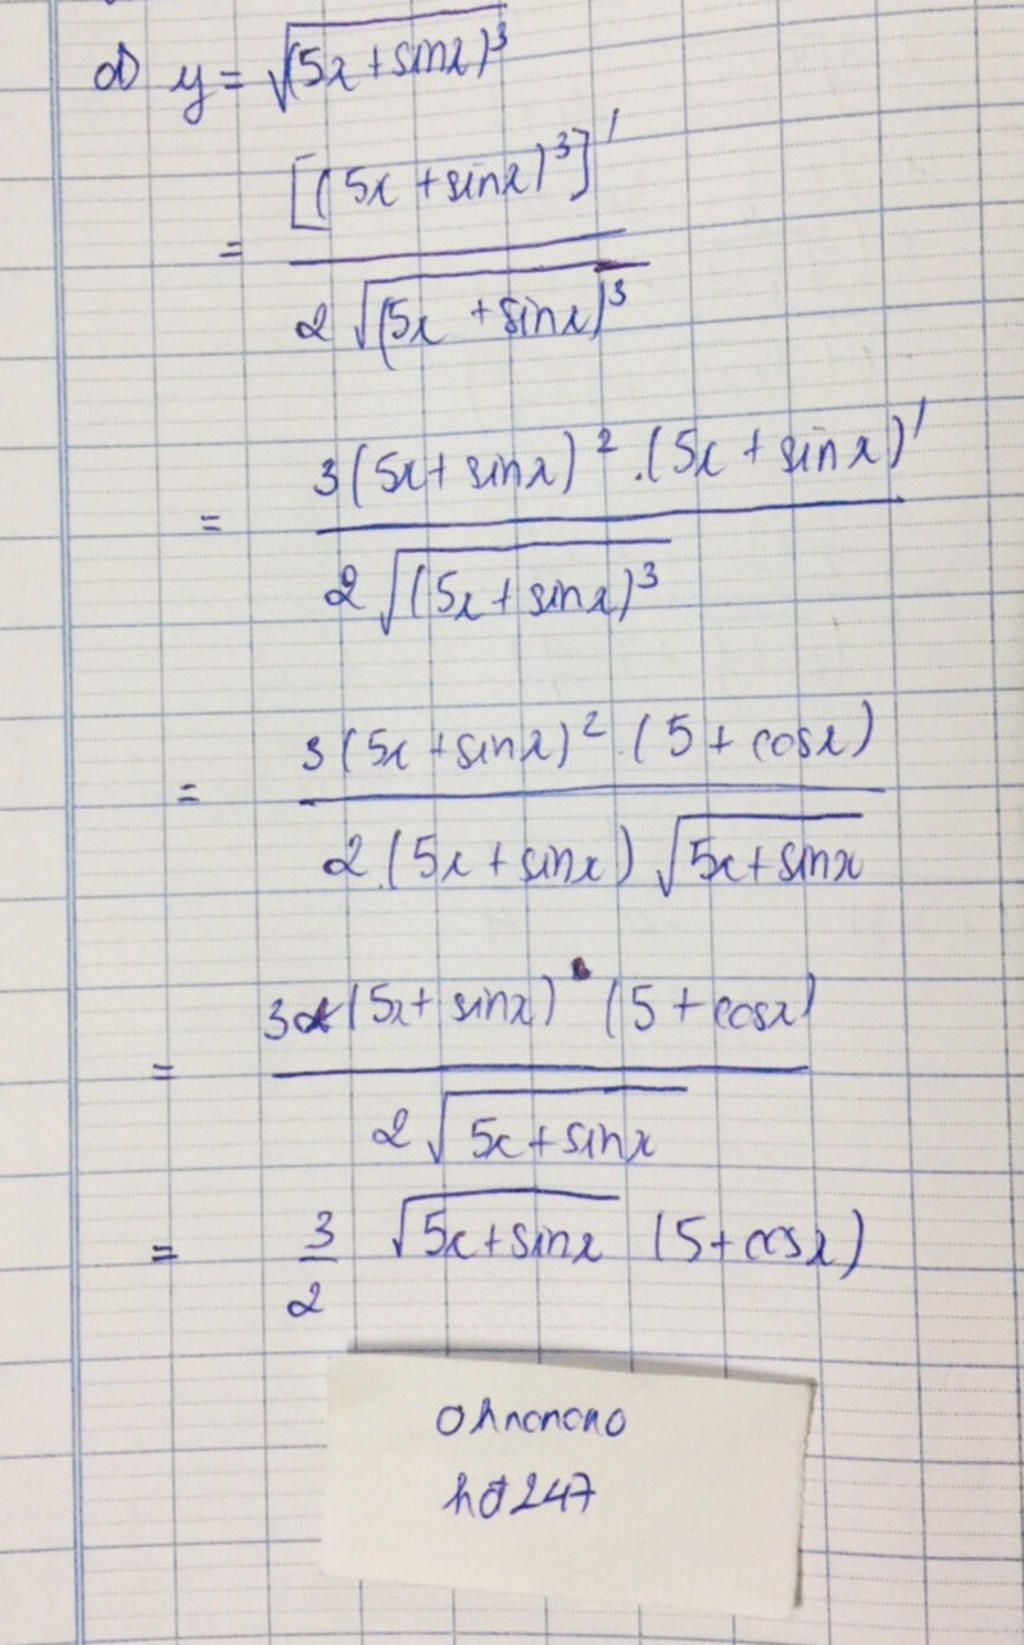 d) y = √(5x + sinx)³
= [(5x + sinx)³]' / 2√(5x + sinx)³
= 3(5x + sinx)² . (5x + sinx)' / 2√(5x + sinx)³
= 3(5x + sinx)² . (5 + cosx) / 2.(5x + sinx) √5x + sinx
= 3(5x + sinx) (5 + cosx) / 2√5x + sinx
= 3/2 √5x + sinx (5 + cosx)
ohnonono
hđ247